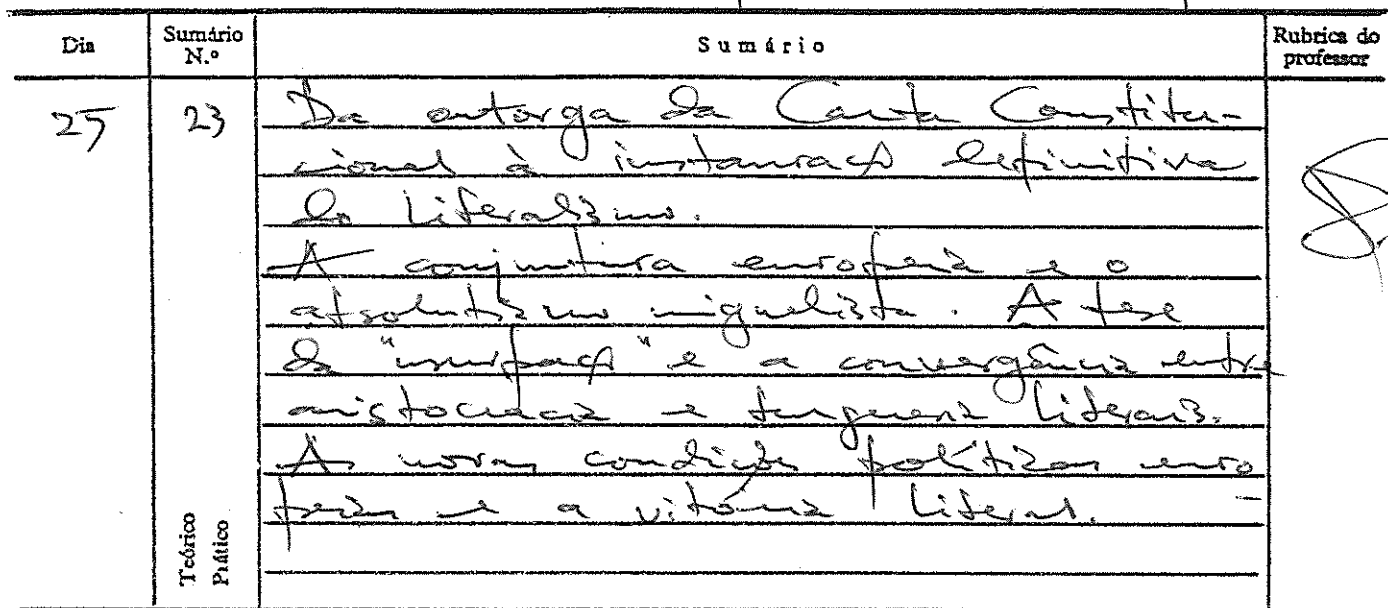 Dia Sumário N.º Sumário Rubrica do professor
25 23 Da outorga da Carta Constitu-
cional à instauração definitiva
do Liberalismo.
A conjuntura europeia e o
absolutismo miguelista. A tese
da "usurpação" e a convergência entre
aristocracia e burguesia liberais.
As novas condições políticas euro
peias e a vitória liberal.
Teórico
Prático